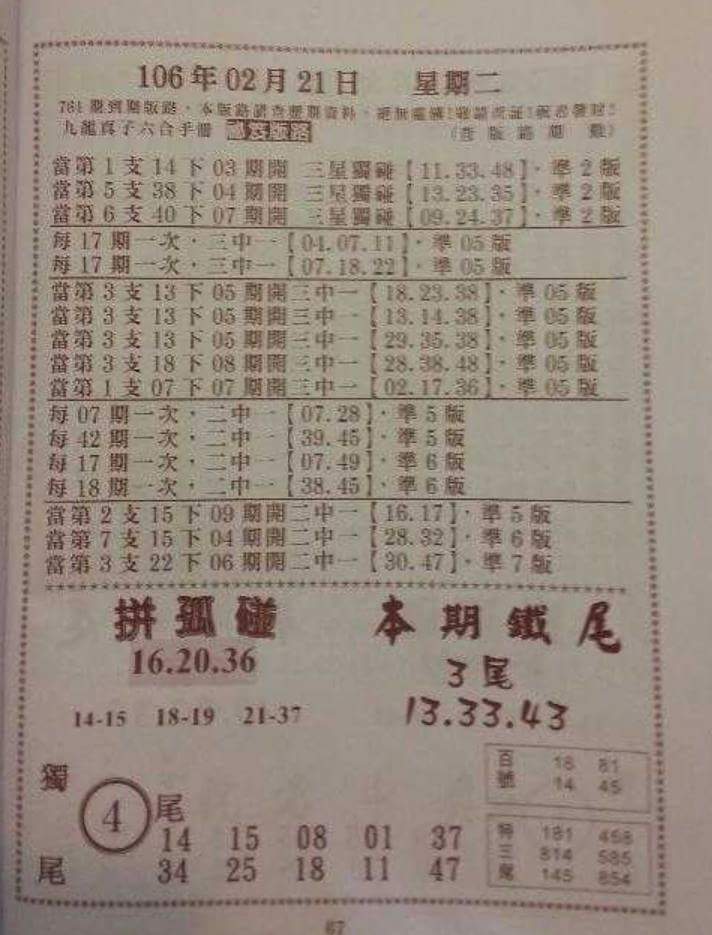 106年02月21日 星期二
九龍真子六合手冊 鐵茓版路
當第1支14下03期開 三星獨碰【11.33.48】·準2版
當第5支38下04期開 三星獨碰【13.23.35】·準2版
當第6支40下07期開 三星獨碰【09.24.37】·準2版
每17期一次·三中一【04.07.11】·準05版
每17期一次·三中一【07.18.22】·準05版
當第3支13下05期開三中一【18.23.38】·準05版
當第3支13下05期開三中一【13.14.38】·準05版
當第3支13下05期開三中一【29.35.38】·準05版
當第3支18下08期開三中一【28.38.48】·準05版
當第1支07下07期開三中一【02.17.36】·準05版
每07期一次·二中一【07.28】·準5版
每42期一次·二中一【39.45】·準5版
每17期一次·二中一【07.49】·準6版
每18期一次·二中一【38.45】·準6版
當第2支15下09期開二中一【16.17】·準5版
當第7支15下04期開二中一【28.32】·準6版
當第3支22下06期開二中一【30.47】·準7版
拼孤碰
16.20.36
14-15 18-19 21-37
本期鐵尾
3尾
13.33.43
獨
尾
4尾
14 15 08 01 37
34 25 18 11 47
百號
18 81
14 45
特三尾
181 458
814 585
145 854
67